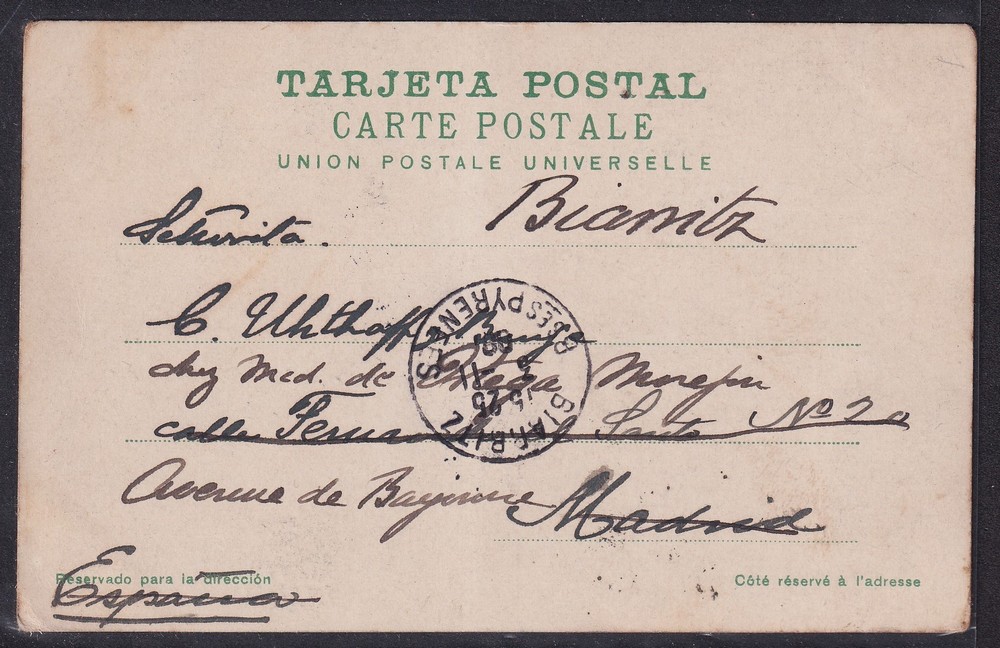 TARJETA POSTAL
CARTE POSTALE
UNION POSTALE UNIVERSELLE
Biarritz
Señorita.
C. Uhthoff
chez Md. de Ortega Morejon
calle Fernando el Santo Nº 20
Avenue de Bayonne
Madrid
España
Reservado para la dirección
Côté réservé à l'adresse
BIARRITZ
BSES PYRENEES